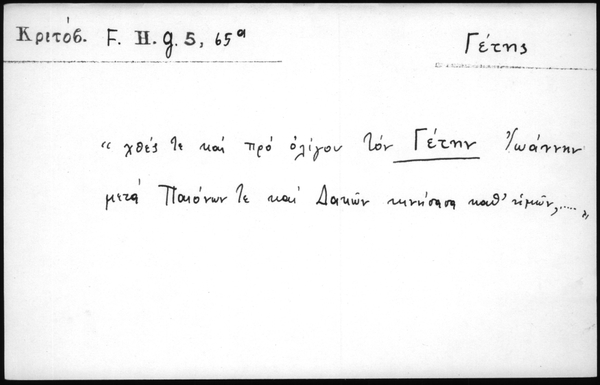 Κριτόβ. F. H. g. 5, 65ª
Γέτης
“ χθές τε καί πρό ὀλίγου τόν Γέτην Ἰωάννην
μετά Παιόνων τε καί Δακῶν κινήσασα καθ’ ἡμῶν, ..... „